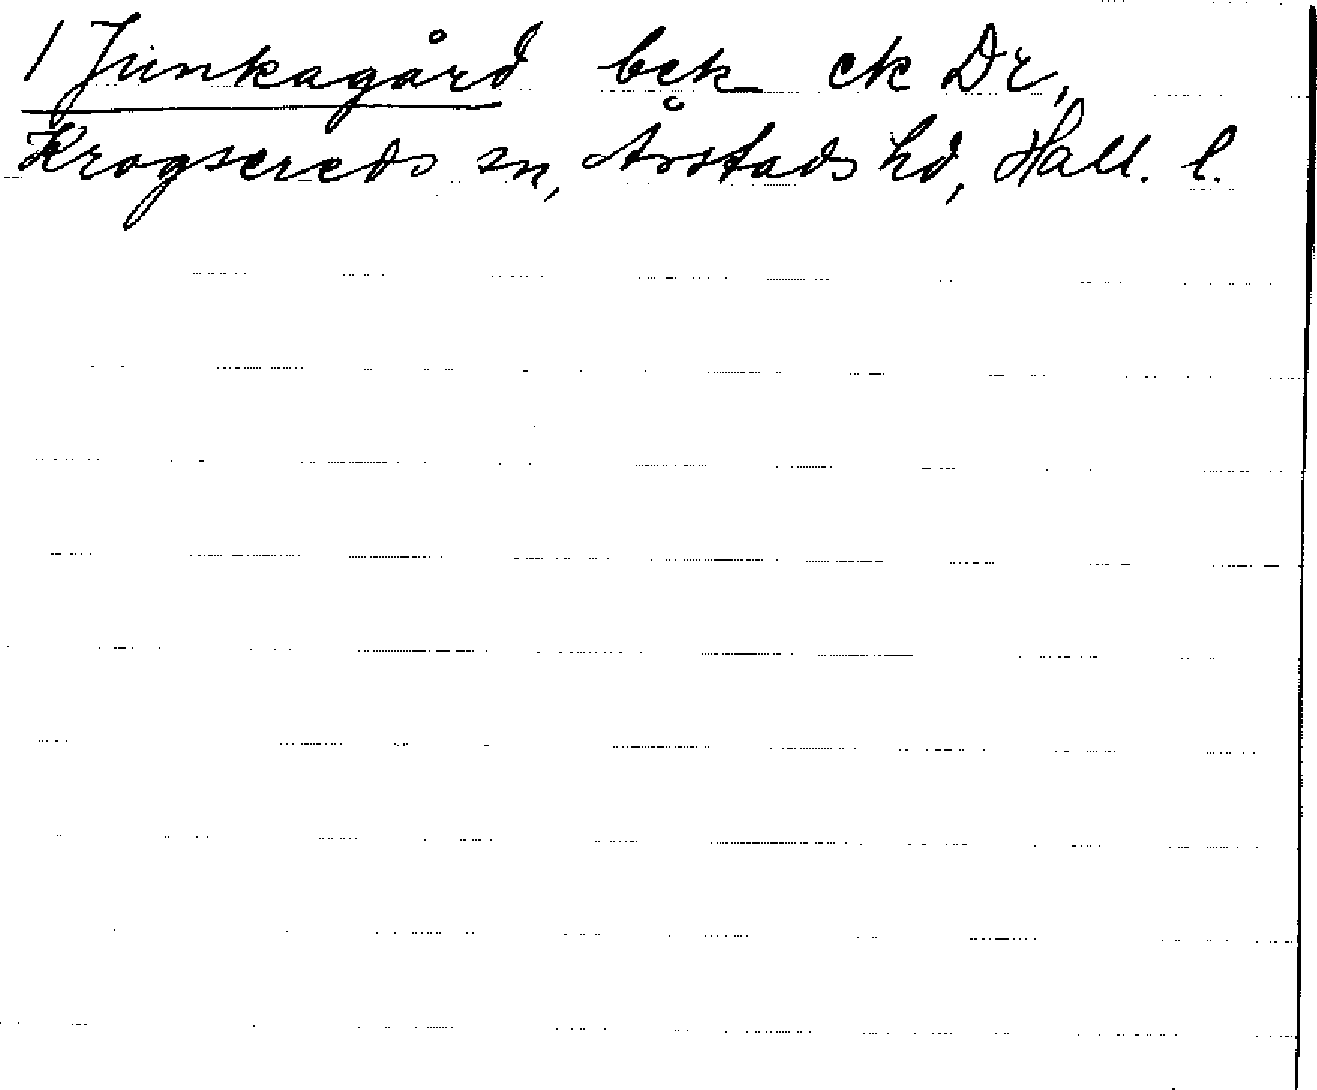 / Junkagård bek ck Dr,
Krogsereds sn, Årstads hd, Hall. l.